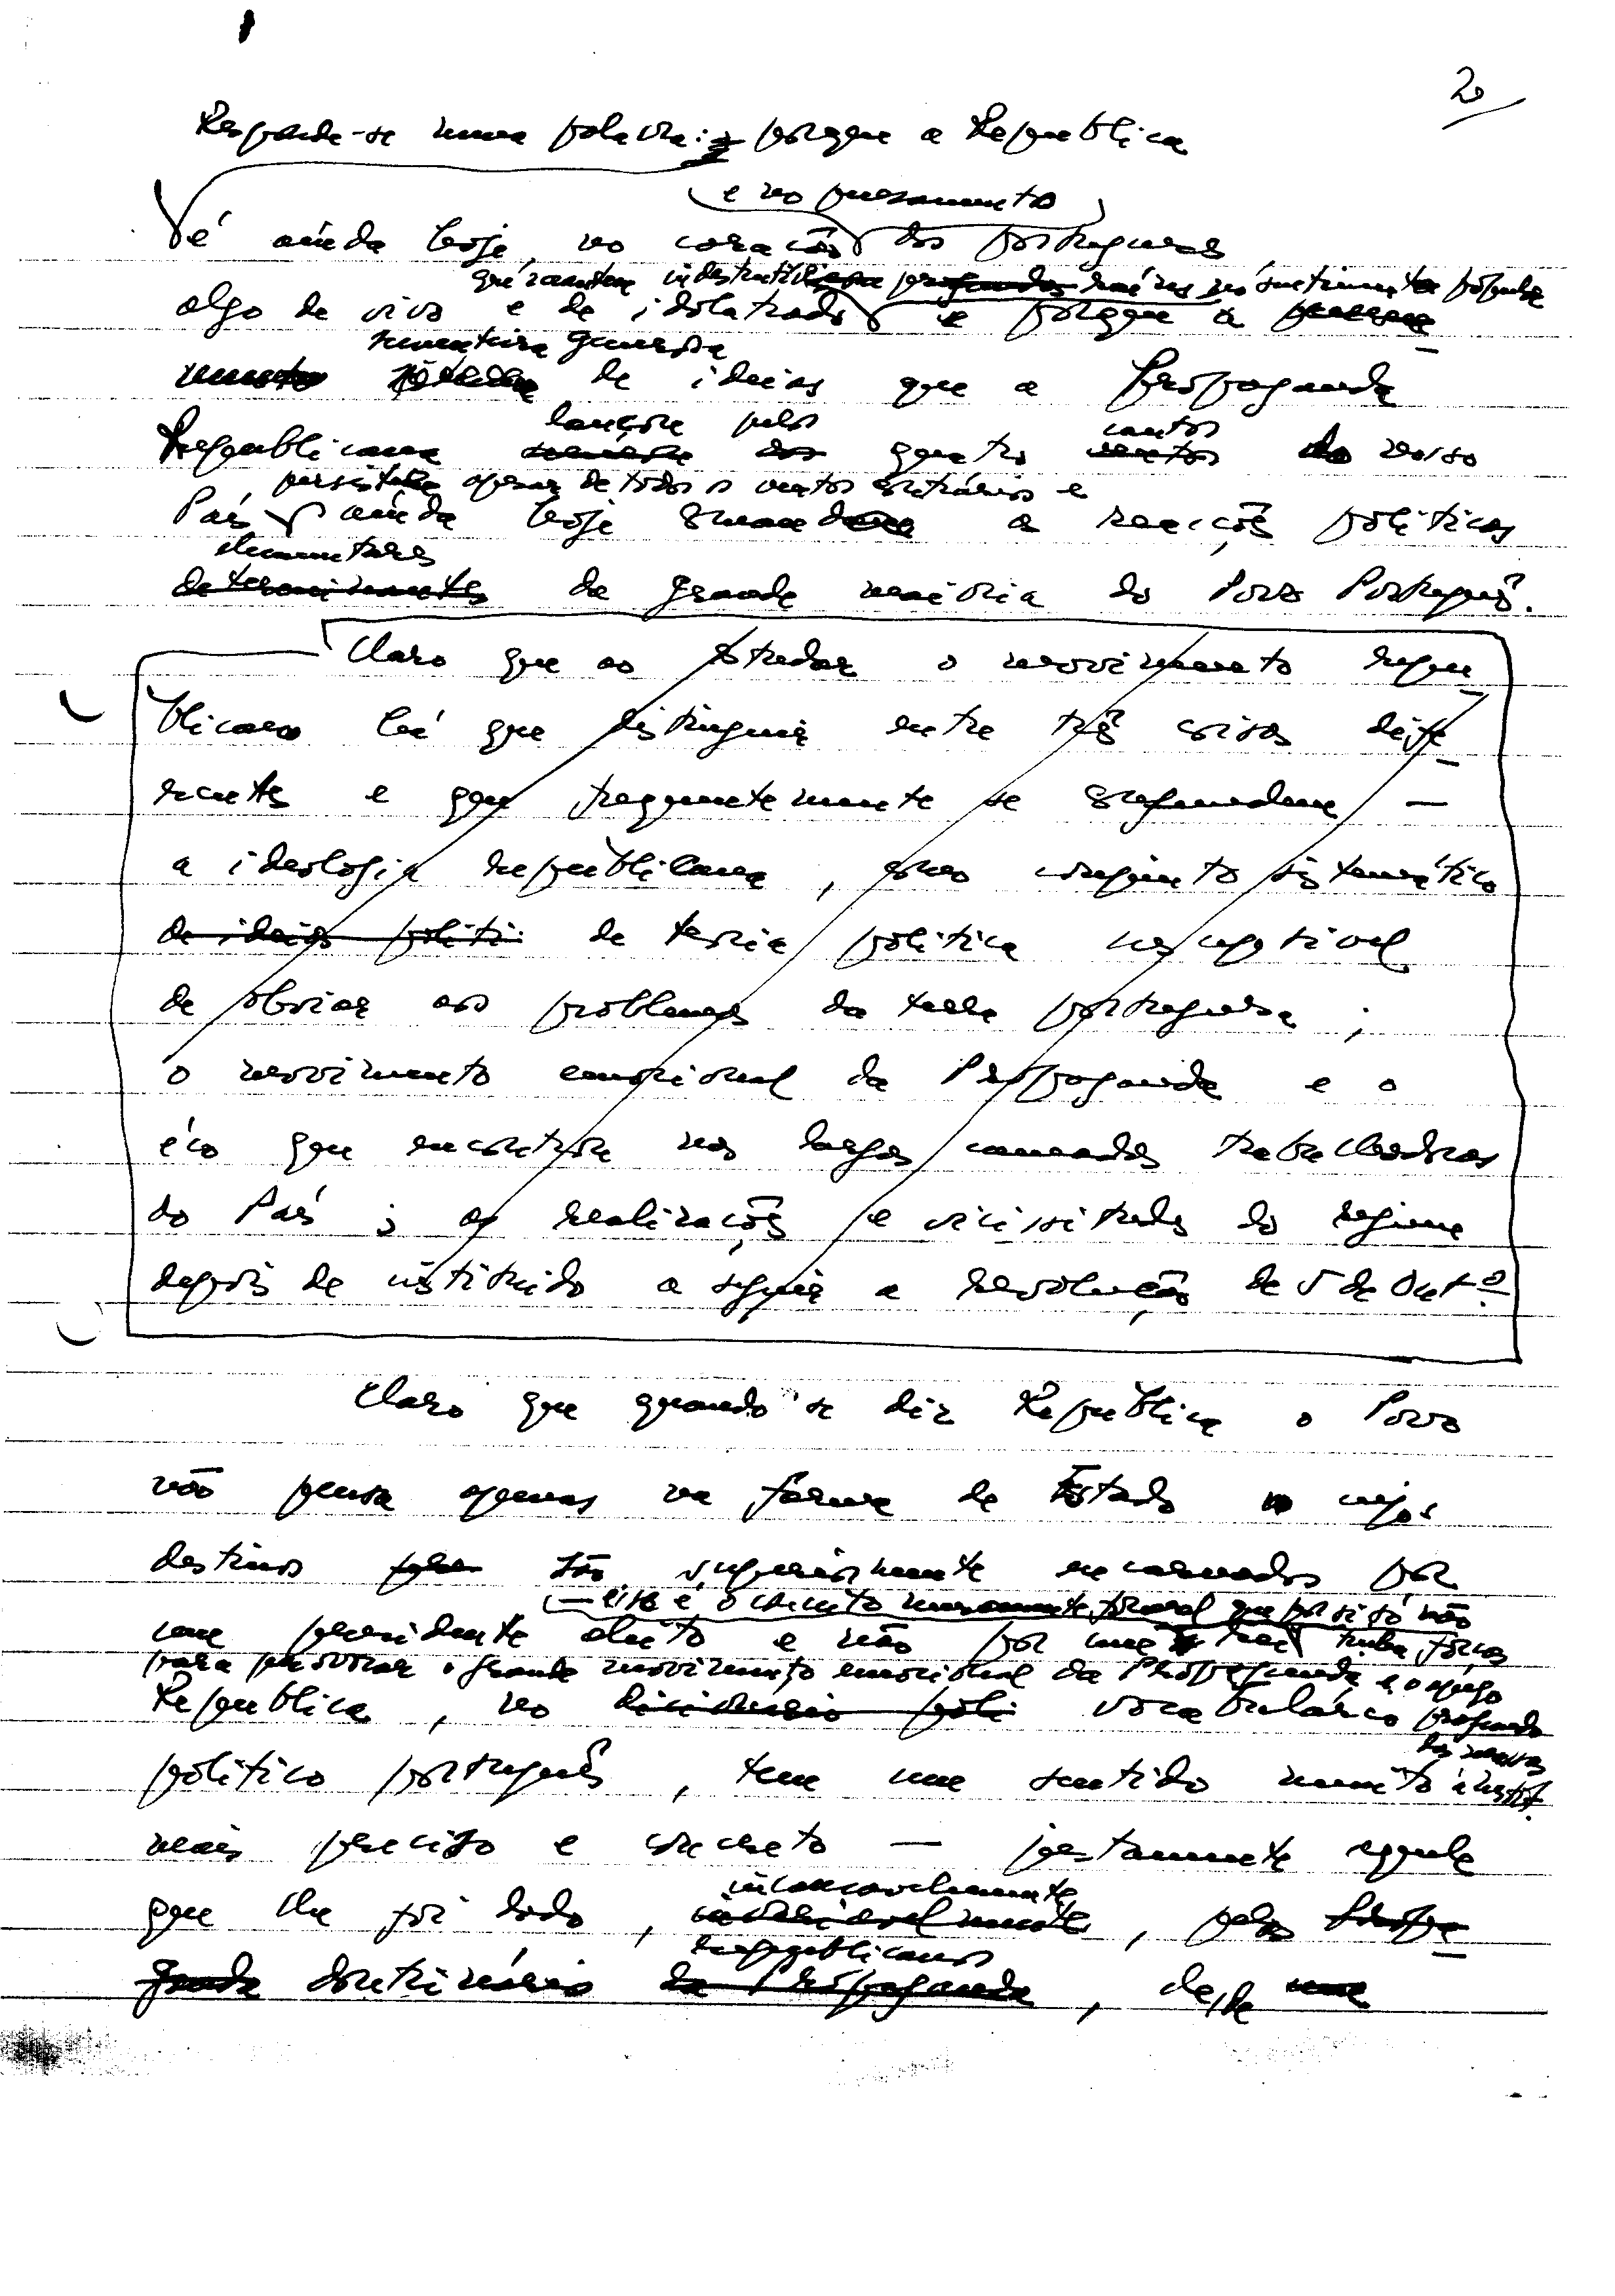 2
Responde-se numa palavra: porque a República
e no pensamento
é ainda hoje, no coração dos portugueses
que mantem indestrutíveis profundas raízes no sentimento popular
algo de vivo e de idolatrado e porque a
sementeira generosa
de ideias que a Propaganda
lançou pelos cantos
Republicana quatro do nosso
persiste apesar de todos os ventos contrários e
País ainda hoje comanda as reacções políticas
elementares
determinantes da grande maioria do Povo Português.
Claro que ao estudar o movimento repu
blicano há que distinguir entre três coisas dife
rentes e que frequentemente se confundem —
a ideologia republicana, como conjunto sistemático
de ideias politi de teoria política susceptível
de obviar aos problemas da terra portuguesa;
o movimento emocional da Propaganda e o
éco que encontrou nas largas camadas trabalhadoras
do País; as realizações e vicissitudes do regime
depois de instituido a seguir a revolução de 5 de Outº
Claro que quando se diz República o Povo
não pensa apenas na forma de Estado cujos
destinos são superiormente encarnados por
— esse é o conceito meramente formal que por si só não
um presidente eleito e não por um rei tinha forças
para provocar o grande movimento emocional da Propaganda e o apego
República, no dicionario poli vocabulário profundo
das massas
político português, tem um sentido muito
mais preciso e concreto — justamente aquele
inconsoavelmente
que lhe foi dado, , pelos Propa
republicanos
ganda doutrinários da Propaganda, desde uma